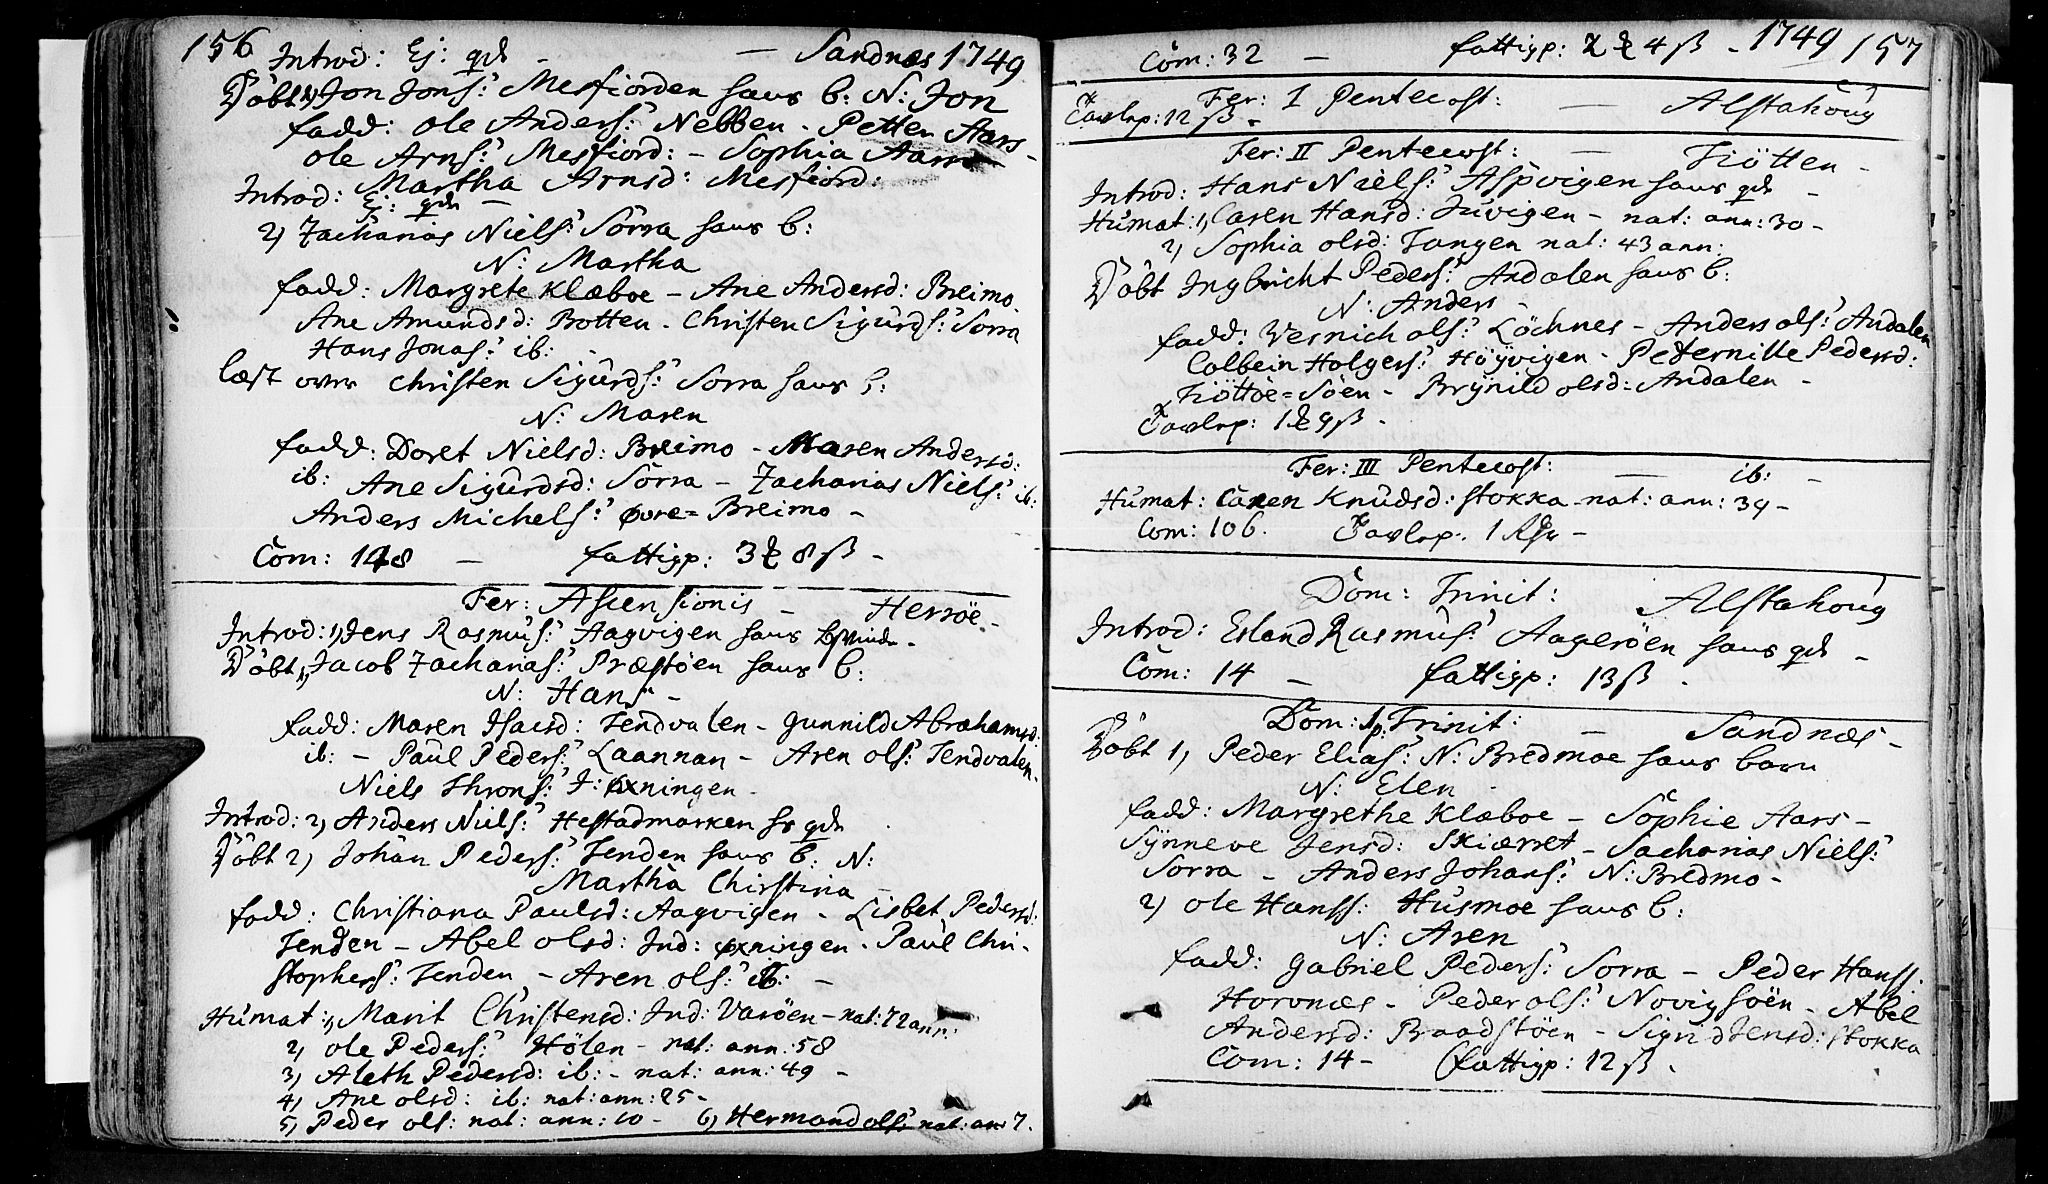 156 Introd: Ej: qv — Sandnæs 1749
Döbt 1, Jon Jons: Mesfiorden haus b: N: Jon
fadd: ole Anders: Nebben - Petter Aars -
ole Arns: Mesfiord: - Sophia Aars
Martha Arnsd: Mesfiord:
Introd: Ej: qv —
2, Zacharias Niels: Sörra haus b:
N: Martha
fadd: Margrete Klæboe - Ane Andersd: Breimo
Ane Amundsd: Botten - Christen Sigurds: Sorra
Hans Jonas: ib:
læst over Christen Sigurds: Sorra haus b:
N: Maren
fadd: Doret Nielsd: Breimo - Maren Andersd:
ib: Ane Sigurdsd: Sörra - Zacharias Niels: ib:
Anders Michels: øvre= Breimo -
Com: 148 — fattigp: 3 8 ß -
Fer: Ascensionis - Herröe -
Introd: 1, Jens Rasmus: Aagvigen haus qvinde -
Döbt 1, Jacob Zacharias: Præstöen haus b:
N: Hans -
fadd: Maren Isacsd: Tendvalen - Gunnild Abrahamsd:
ib: - Paul Peders: Laannan - Aren ols: Tendvalen -
Niels Throns: I: øxningen -
Introd: 2, Anders Niels: Hestadmarken hs qv
Döbt 2, Johan Peders: Tenden haus b: N:
Martha Christina
fadd: Christiana Paulsd: Aagvigen - Lisbet Pedersd:
Tenden - Abel olsd: Ind: øxningen - Paul Chri-
stophers: Tenden - Aren ols: ib: -
Humat: 1, Marit Christensd: Ind: Varöen - nat: 72 ann:
2, ole Peders: Hölen - nat: ann: 58
3, Aleth Pedersd: ib: - nat: ann: 49 -
4, Ane olsd: ib: nat: ann: 25 -
5, Peder ols: nat: ann: 10 - 6, Hermand ols: nat: an: 7.
Com: 32 — fattigp: 2 4 ß - 1749 157
Fer: I Pentecost: — Alstahoug
Tavlep: 12 ß -
Fer: II Pentecost: — Tiötten -
Introd: Hans Niels: Aspvigen haus qv -
Humat: 1, Caren Hansd: Juvigen - nat: ann: 30 -
2, Sophia olsd: Tangen nat: 43 ann:
Döbt Ingbricht Peders: Andalen haus b:
N: Anders -
fadd: Wernich ols: Löchnes - Anders ols: Andalen
Colbein Holgers: Höyvigen - Peternille Pedersd:
Tiöttöe=Söen - Brynild olsd= Andalen -
Tavlep: 1 9 ß -
Fer: III Pentecost: — ib: -
Humat: Caren Knudsd: Stokka - nat: ann: 39 -
Com: 106. Tavlep: 1 Rdr -
Dom: Trinit: Alstahoug
Introd: Erland Rasmus: Aageröen haus qv -
Com: 14 — fattigp: 13 ß -
Dom: 1 p: Trinit: — Sandnæs -
Döbt 1, Peder Elias: N: Bredmoe haus barn
N: Elen -
fadd: Margrethe Klæboe - Sophie Aars -
Synneve Jensd: Skiærret - Sacharias Niels:
Sorra - Anders Johans: N: Bredmo -
2, ole Hanss: Husmoe haus b:
N: Aren
fadd: Gabriel Peders: Sorra - Peder Hanss:
Horvnæs - Peder ols: Novigsöen - Abel
Andersd: Braadstöen - Sigrid Jensd: Stokka
Com: 14 - fattigp: 12 ß -